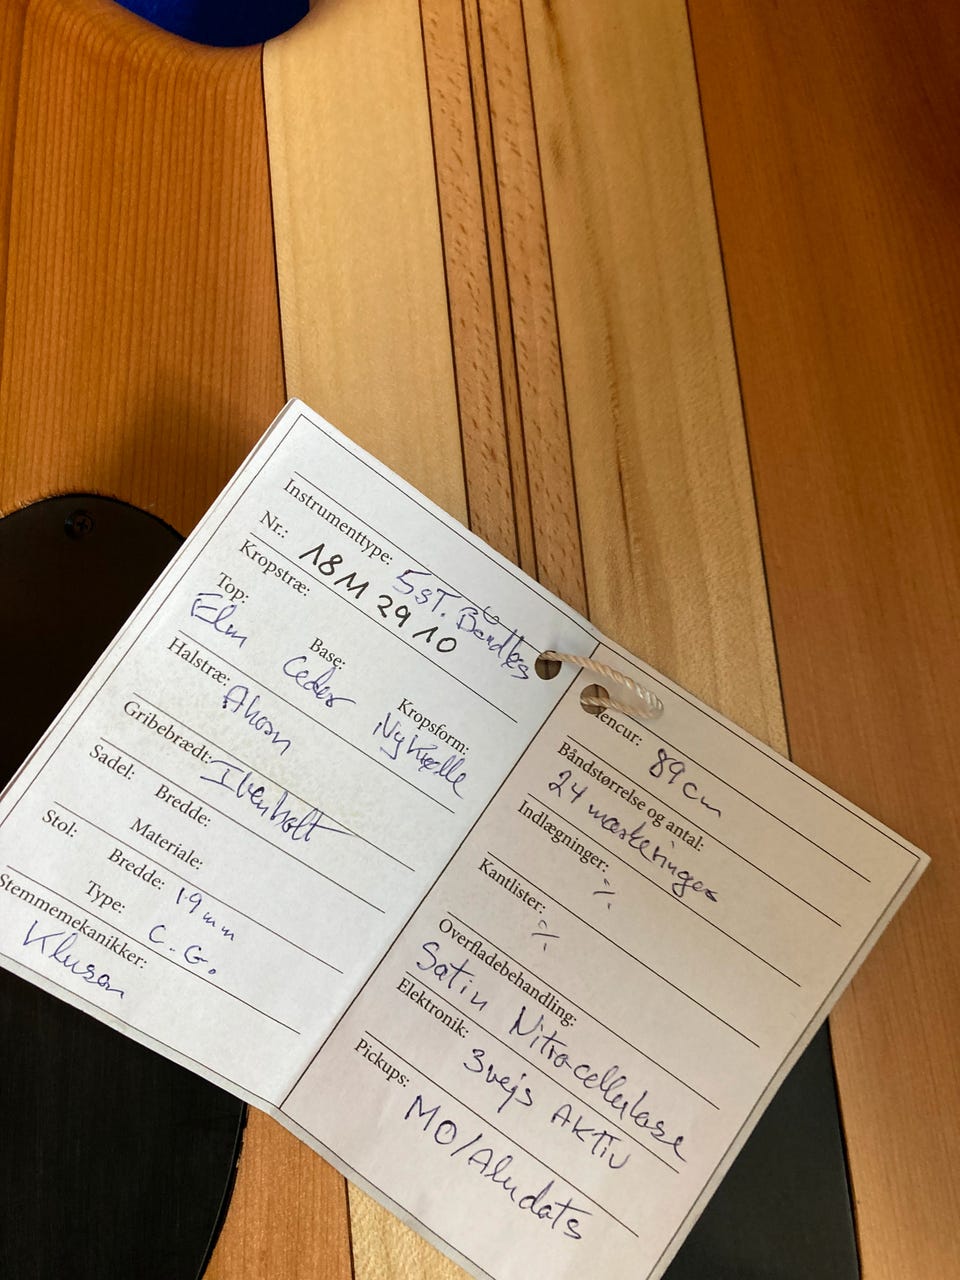 Instrumenttype: 5 st. Båndløs
Nr.: 18M 29 10
Kropstræ:
Top: Base: Kropsform:
Elm Ceder
Halstræ: Ahorn
Gribebrædt: Ibenholt
Sadel: Bredde:
Materiale:
Stol: Bredde: 19 mm
Type: C.G.
Stemmemekanikker:
Kluson
89 cm
Båndstørrelse og antal:
24 markeringer
Indlægninger: ⁒
Kantlister: ⁒
Overfladebehandling:
Satin Nitrocellulose
Elektronik: 3vejs AKTiv
Pickups: MO/